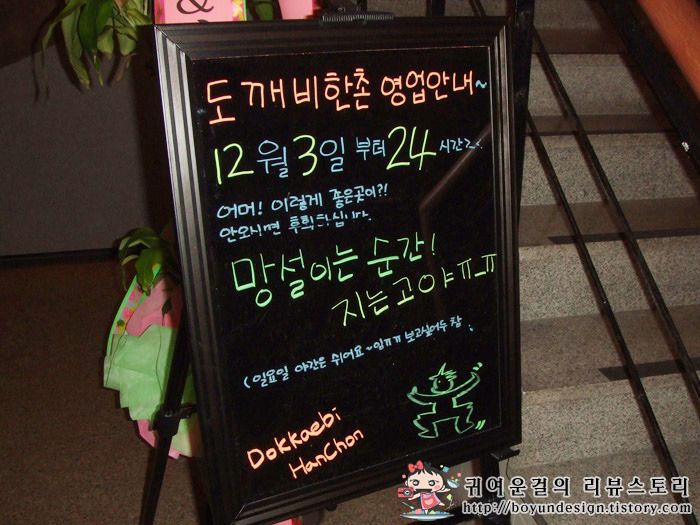 &
도깨비한촌 영업안내~
12월 3일 부터 24시간
어머! 이렇게 좋은곳이?!
안오시면 후회하십니다.
망설이는 순간!
지는고야 ㅠ_ㅠ
(일요일 야간은 쉬어요~ 보고싶어두 참
Dokkaebi
HanChon
귀여운걸의 리뷰스토리
http://boyundesign.tistory.com